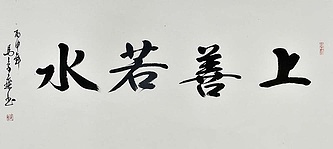 上善若水
丙申年